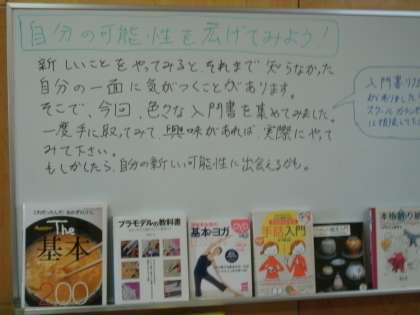 自分の可能性を広げてみよう!
新しいことをやってみると、それまで知らなかった
自分の一面に気がつくことがあります。
そこで、今回、色々な入門書を集めてみました。
一度手に取ってみて、興味があれば、実際にやって
みて下さい。
もしかしたら、自分の新しい可能性に出会えるかも。
入門書
The
基本
200
プラモデルの教科書
基本のヨガ
手話入門